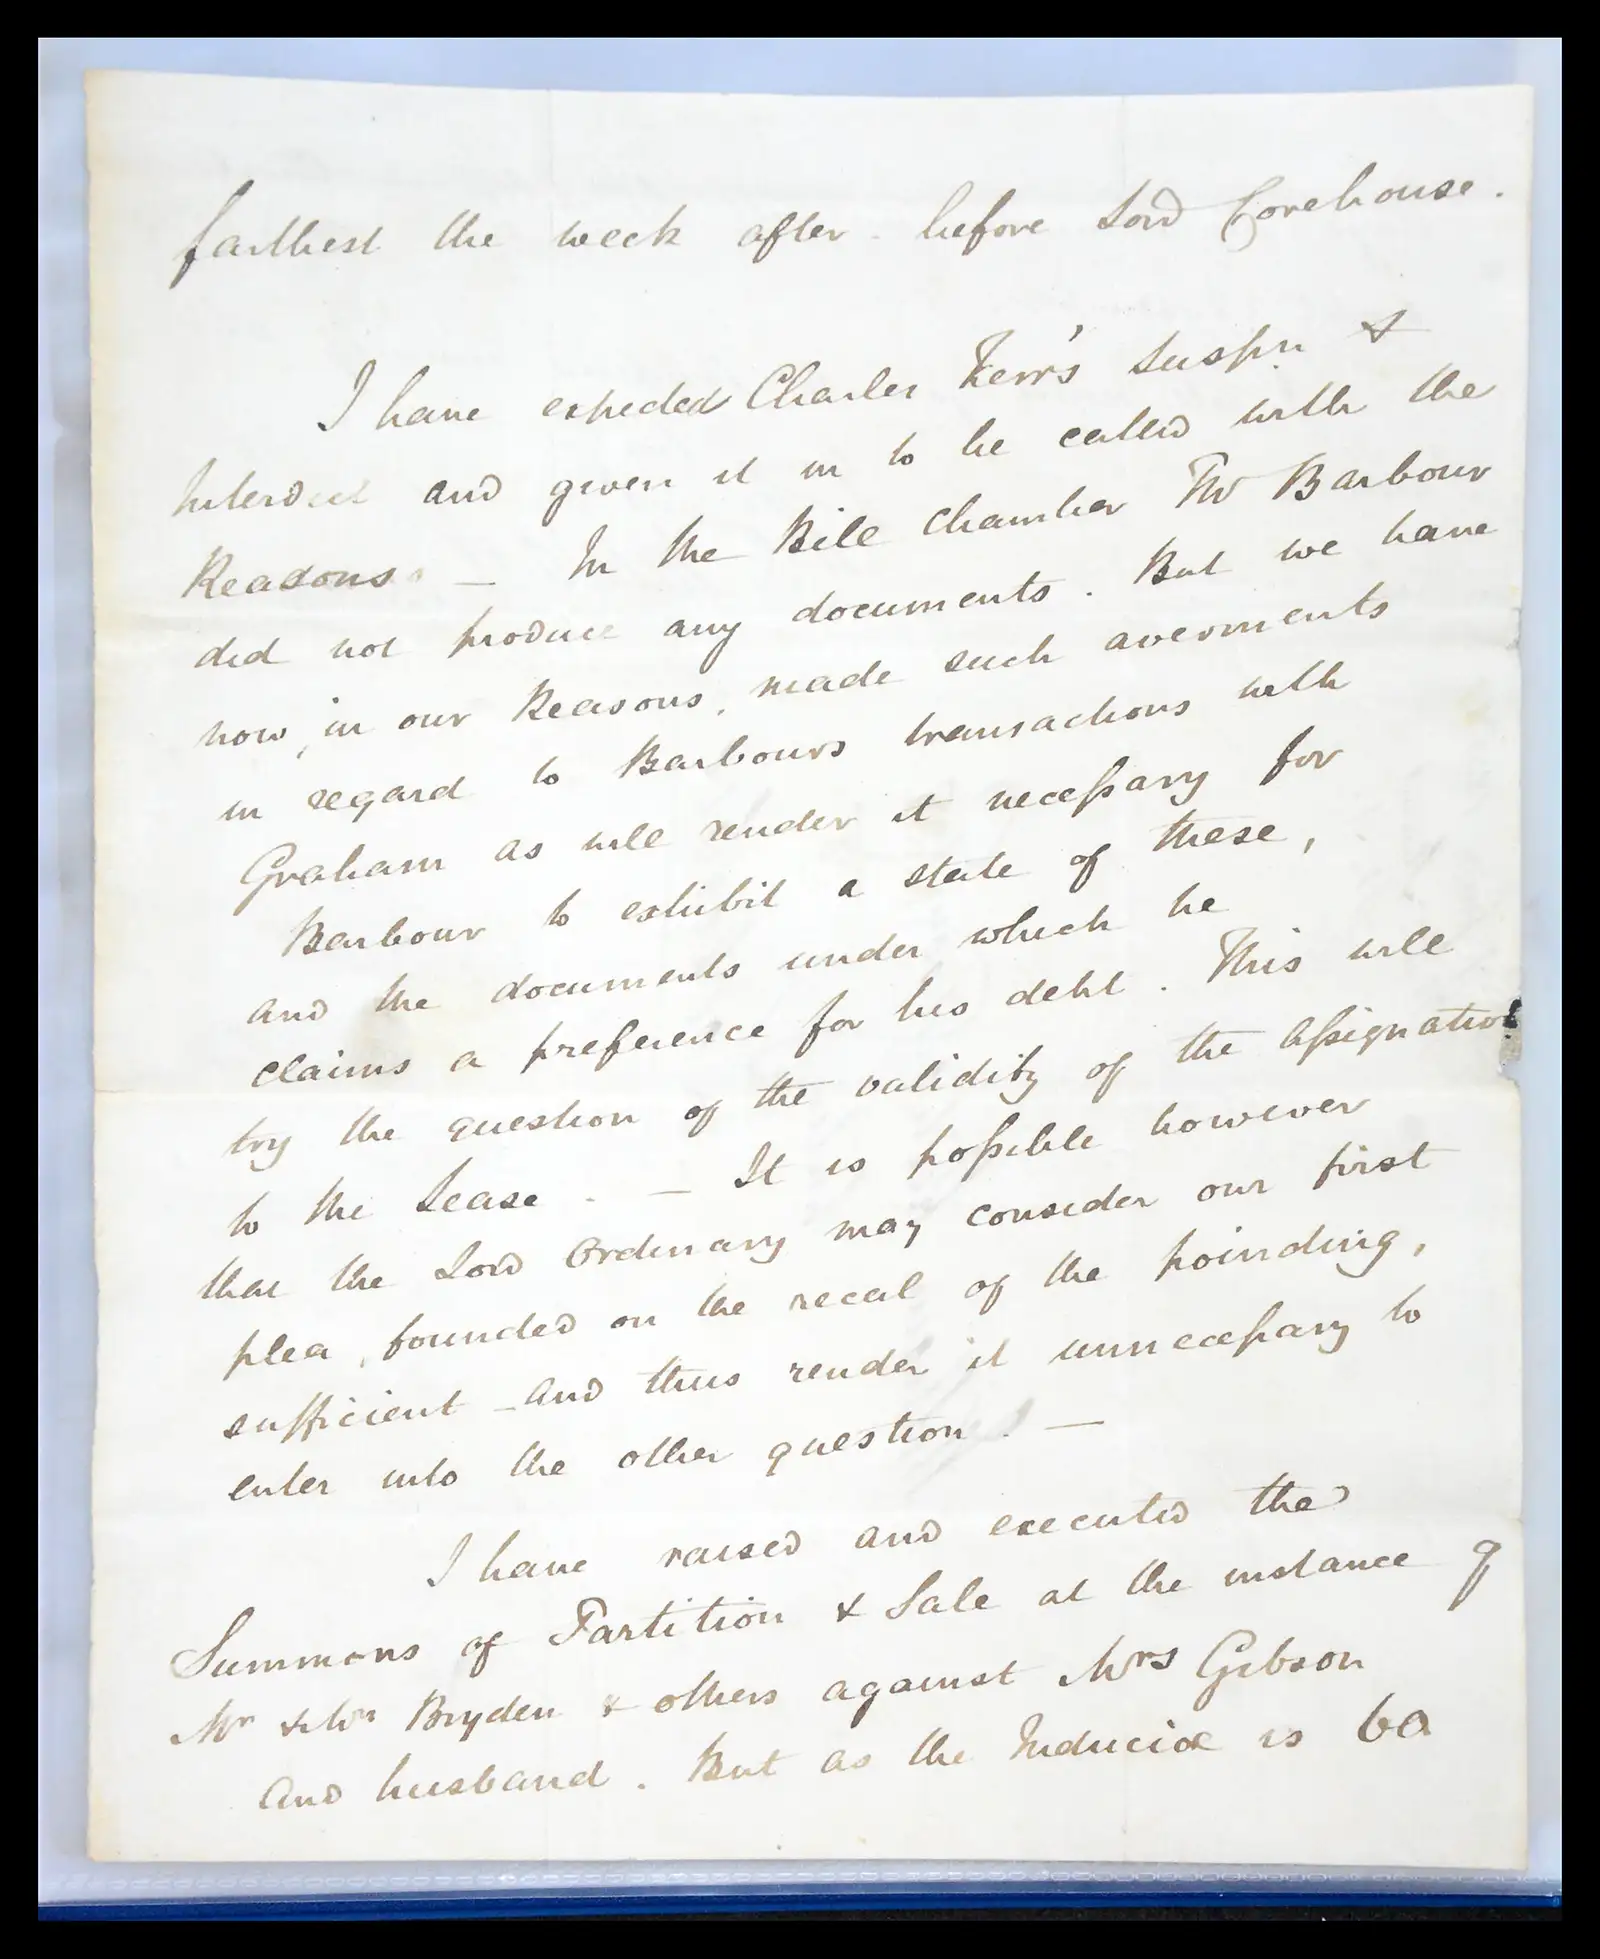 farthest the week after - before Lord Corehouse.
I have expeded Charles Kerr's Suspn. &
Interdict and given it in to be called with the
Reasons. — In the Bill Chamber Mr Barbour
did not produce any documents. But we have
now, in our Reasons, made such averments
in regard to Barbours transactions with
Graham as will render it necessary for
Barbour to exhibit a state of these,
and the documents under which he
claims a preference for his debt. This will
try the question of the validity of the Assignation
to the Lease. — It is possible however
that the Lord Ordinary may consider our first
plea, founded on the recal of the poinding,
sufficient - and thus render it unnecessary to
enter into the other question. —
I have raised and executed the
Summons of Partition & Sale at the instance of
Mr & Mrs Bryden & others against Mrs Gibson
and husband. But as the Induciæ is 60